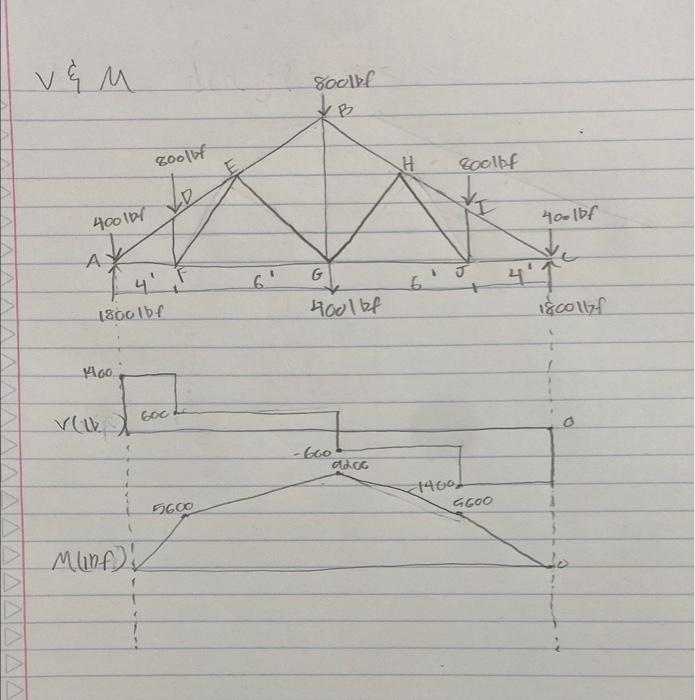 V & M
800lbf
B
800lbf
E
H
800lbf
D
I
400lbf
400lbf
A
F
G
J
C
4'
6'
6'
4'
1800lbf
400lbf
1800lbf
1400
600
V(lb
0
-600
9200
-1400
5600
5600
M(lbf)
0